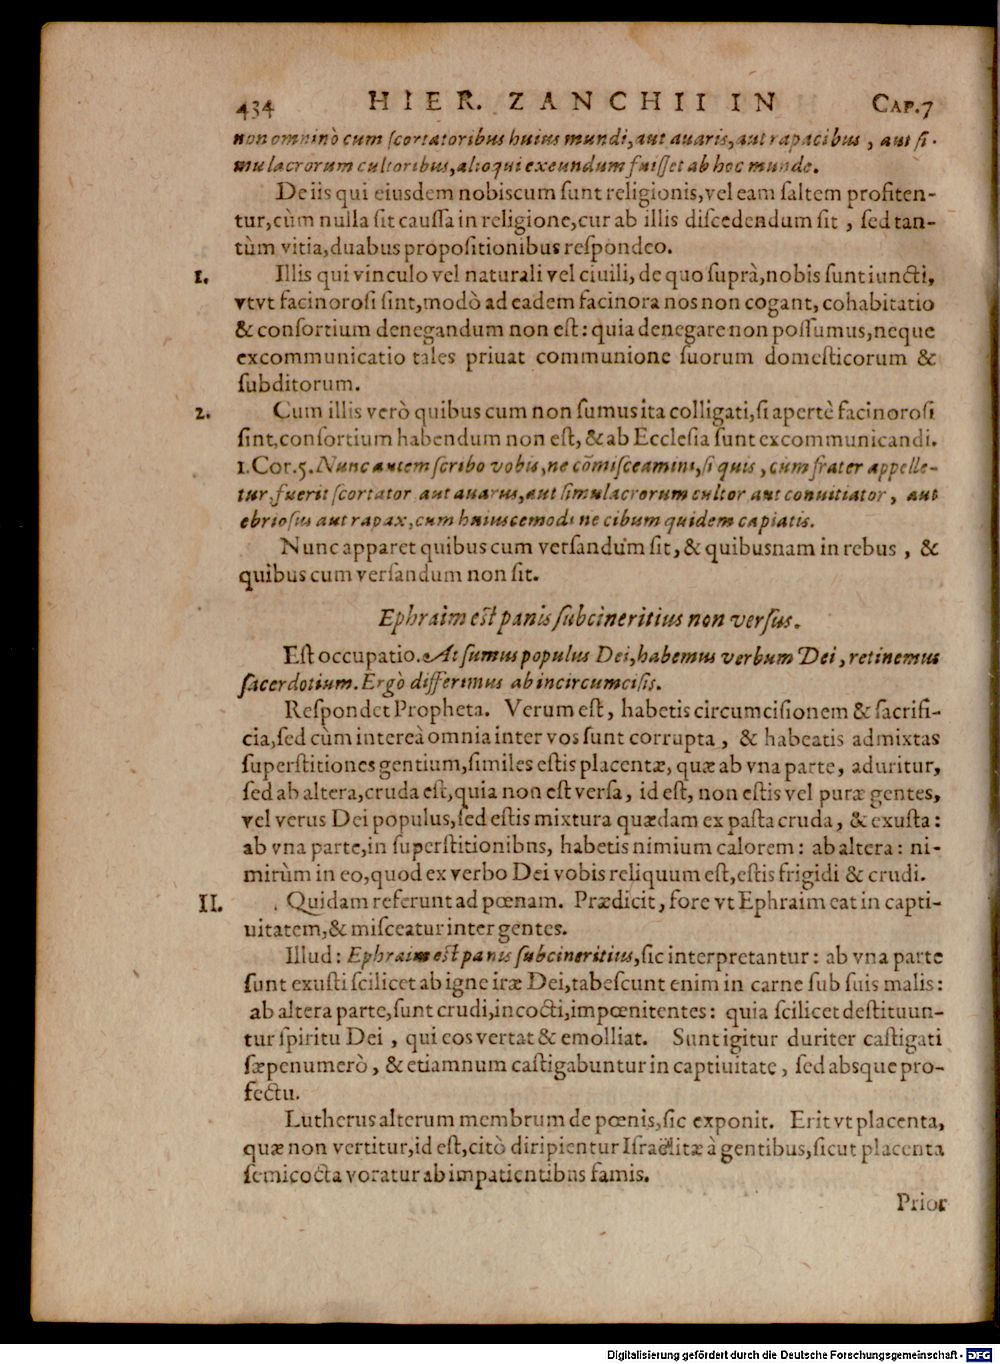 434 HIER. ZANCHII IN CAP.7
non omninò cum ſcortatoribus huius mundi, aut auaris, aut rapacibus, aut ſi-
mulacrorum cultoribus, alioqui exeundum fuiſſet ab hoc mundo.
De iis qui eiusdem nobiscum ſunt religionis, vel eam ſaltem profiten-
tur, cùm nulla ſit cauſſa in religione, cur ab illis diſcedendum ſit, ſed tan-
tùm vitia, duabus propoſitionibus reſpondeo.
1. Illis qui vinculo vel naturali vel ciuili, de quo ſuprà, nobis ſunt iuncti,
vtvt facinoroſi ſint, modò ad eadem facinora nos non cogant, cohabitatio
& conſortium denegandum non eſt: quia denegare non poſſumus, neque
excommunicatio tales priuat communione ſuorum domeſticorum &
ſubditorum.
2. Cum illis verò quibus cum non ſumus ita colligati, ſi apertè facinoroſi
ſint, conſortium habendum non eſt, & ab Eccleſia ſunt excommunicandi.
1. Cor. 5. Nunc autem ſcribo vobis, ne cōmiſceamini, ſi quis, cùm frater appelle-
tur, fuerit ſcortator aut auarus, aut ſimulacrorum cultor aut conuitiator, aut
ebrioſus aut rapax, cum huiuscemodi ne cibum quidem capiatis.
Nunc apparet quibus cum verſandum ſit, & quibusnam in rebus, &
quibus cum verſandum non ſit.
Ephraim eſt panis ſubcineritius non verſus.
Eſt occupatio. At ſumus populus Dei, habemus verbum Dei, retinemus
ſacerdotium. Ergò differimus ab incircumciſis.
Reſpondet Propheta. Verum eſt, habetis circumciſionem & ſacrifi-
cia, ſed cùm intereà omnia inter vos ſunt corrupta, & habeatis admixtas
ſuperſtitiones gentium, ſimiles eſtis placentæ, quæ ab vna parte, aduritur,
ſed ab altera, cruda eſt, quia non eſt verſa, id eſt, non eſtis vel puræ gentes,
vel verus Dei populus, ſed eſtis mixtura quædam ex paſta cruda, & exuſta:
ab vna parte, in ſuperſtitionibns, habetis nimium calorem: ab altera: ni-
mirùm in eo, quod ex verbo Dei vobis reliquum eſt, eſtis frigidi & crudi.
II. Quidam referunt ad pœnam. Prædicit, fore vt Ephraim eat in capti-
uitatem, & miſceatur inter gentes.
Illud: Ephraim eſt panis ſubcineritius, ſic interpretantur: ab vna parte
ſunt exuſti ſcilicet ab igne iræ Dei, tabeſcunt enim in carne ſub ſuis malis:
ab altera parte, ſunt crudi, incocti, impœnitentes: quia ſcilicet deſtituun-
tur ſpiritu Dei, qui eos vertat & emolliat. Sunt igitur duriter caſtigati
ſæpenumerò, & etiamnum caſtigabuntur in captiuitate, ſed absque pro-
fectu.
Lutherus alterum membrum de pœnis, ſic exponit. Erit vt placenta,
quæ non vertitur, id eſt, citò diripientur Iſraëlitæ à gentibus, ſicut placenta
ſemicocta voratur ab impatientibns famis.
Prior
Digitalisierung gefördert durch die Deutsche Forschungsgemeinschaft - DFG